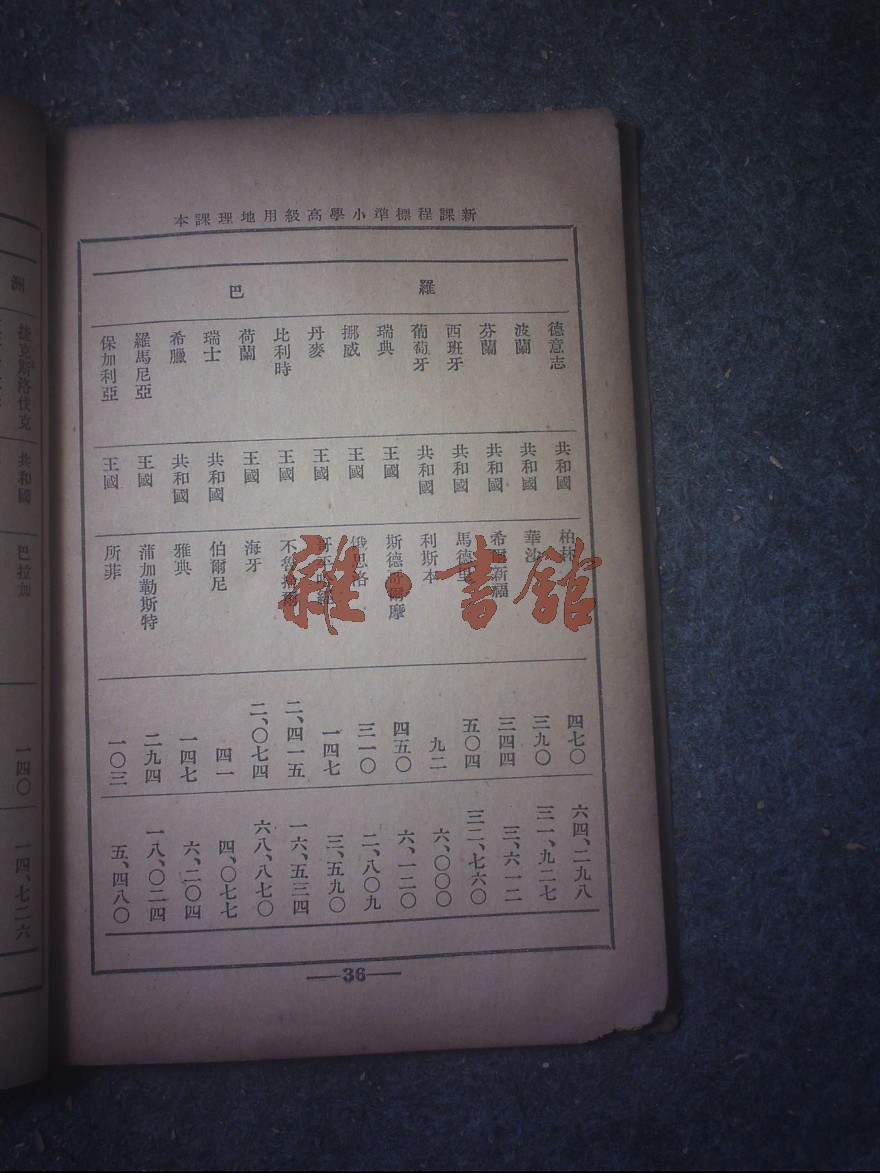 新課程標準小學高級用地理課本
羅
巴
德意志 共和國 柏林 四七〇 六四、二九八
波蘭 共和國 華沙 三九〇 三一、九二七
芬蘭 共和國 希爾新福 三四四 三、六一二
西班牙 共和國 馬德里 五〇四 三二、七六〇
葡萄牙 共和國 利斯本 九二 六、〇〇〇
瑞典 王國 斯德哥爾摩 四五〇 六、一二〇
挪威 王國 三一〇 二、八〇九
丹麥 王國 一四七 三、五九〇
比利時 王國 二、四一五 一六、五三四
荷蘭 王國 海牙 二、〇七四 六八、八七〇
瑞士 共和國 伯爾尼 四一 四、〇七七
希臘 共和國 雅典 一四七 六、二〇四
羅馬尼亞 王國 蒲加勒斯特 二九四 一八、〇二四
保加利亞 王國 所菲 一〇三 五、四八〇
36
洲
捷克斯洛伐克 共和國 巴拉加 一四〇 一四、七二六
雜·書館